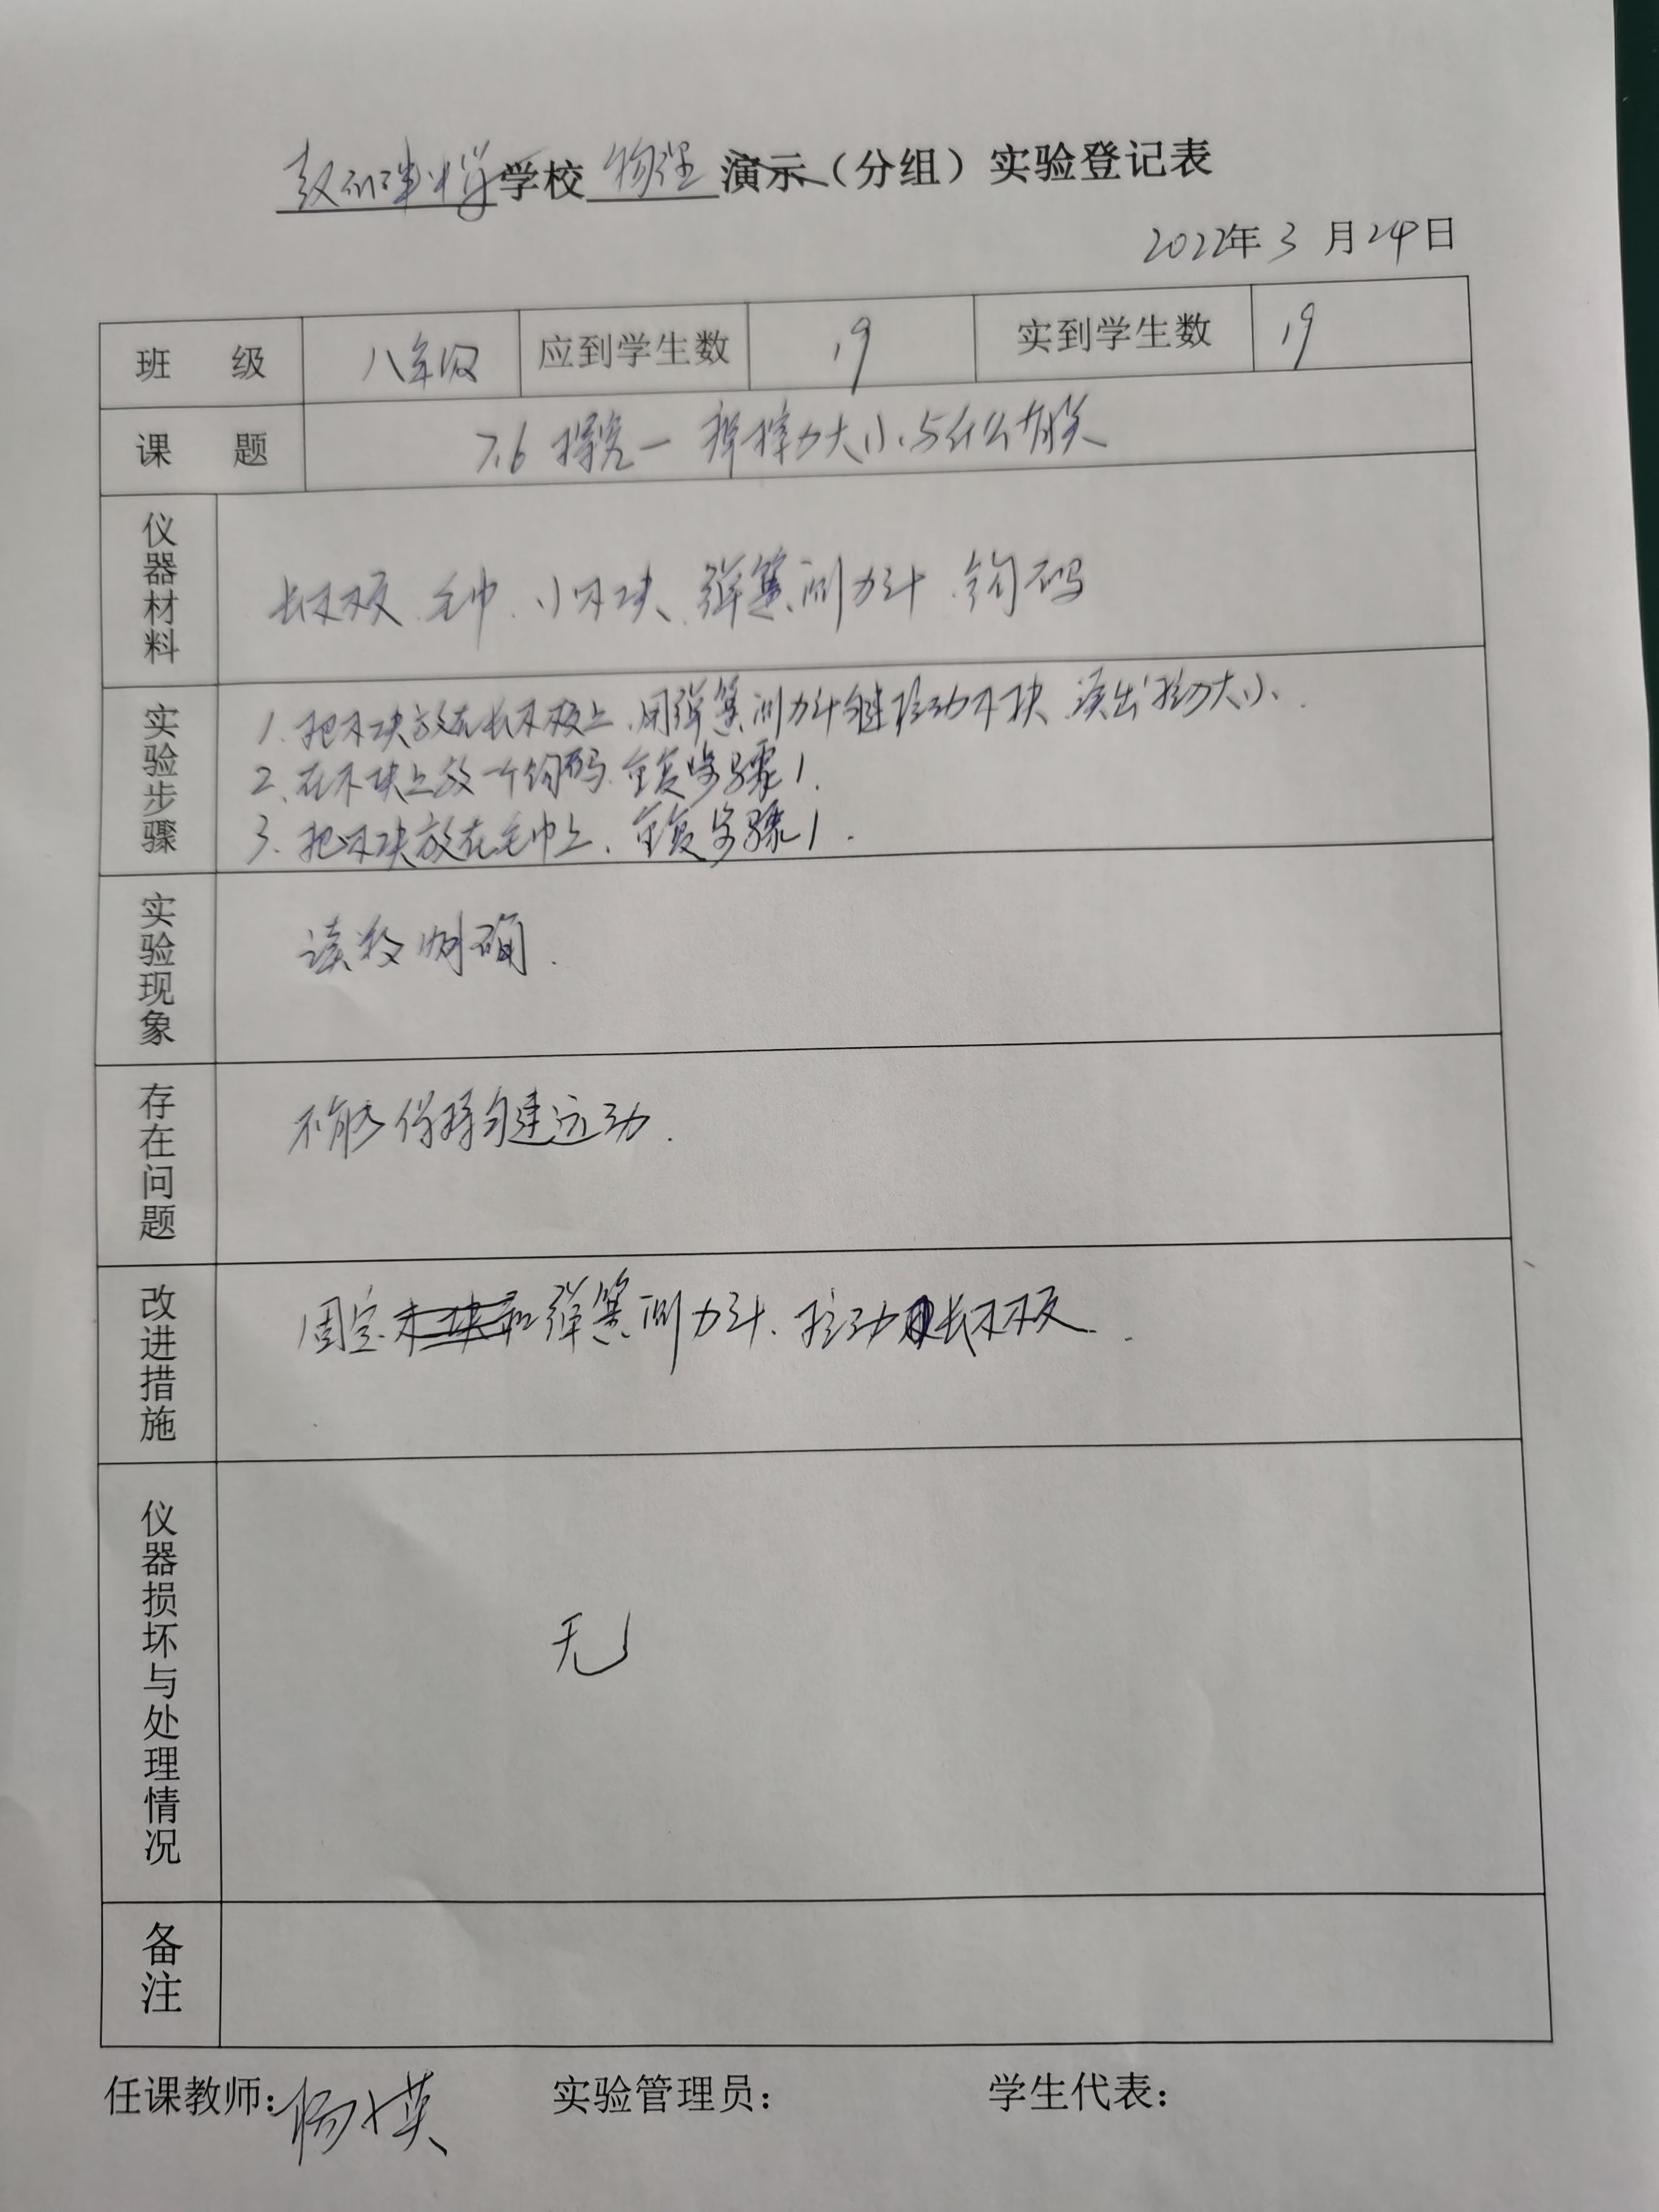 学校 物理 演示（分组）实验登记表
2022年3月24日
班 级 八年级 应到学生数 19 实到学生数 19
课 题 7.6 探究一 摩擦力大小与什么有关
仪器材料 长木板、毛巾、小木块、弹簧测力计、钩码
实验步骤 1、把木块放在长木板上，用弹簧测力计匀速拉动木块，读出拉力大小。
2、在木块上放一个钩码，重复步骤1.
3、把木块放在毛巾上，重复步骤1.
实验现象 读数明确.
存在问题 不能保持匀速运动.
改进措施 固定木块和弹簧测力计，拉动长木板.
仪器损坏与处理情况 无
备注
任课教师： 实验管理员： 学生代表：